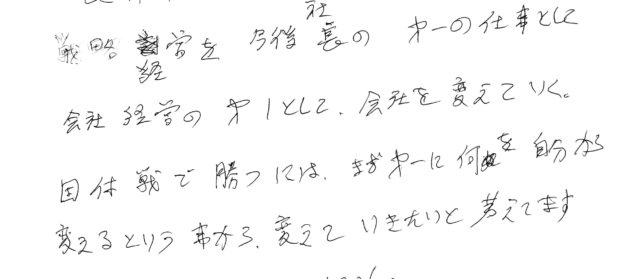 戦略経営を今後社長の第一の仕事として
会社経営の第1として、会社を変えていく。
団体戦で勝つには、まず第一に何を自分から
変えるという事から、変えていきたいと考えてます